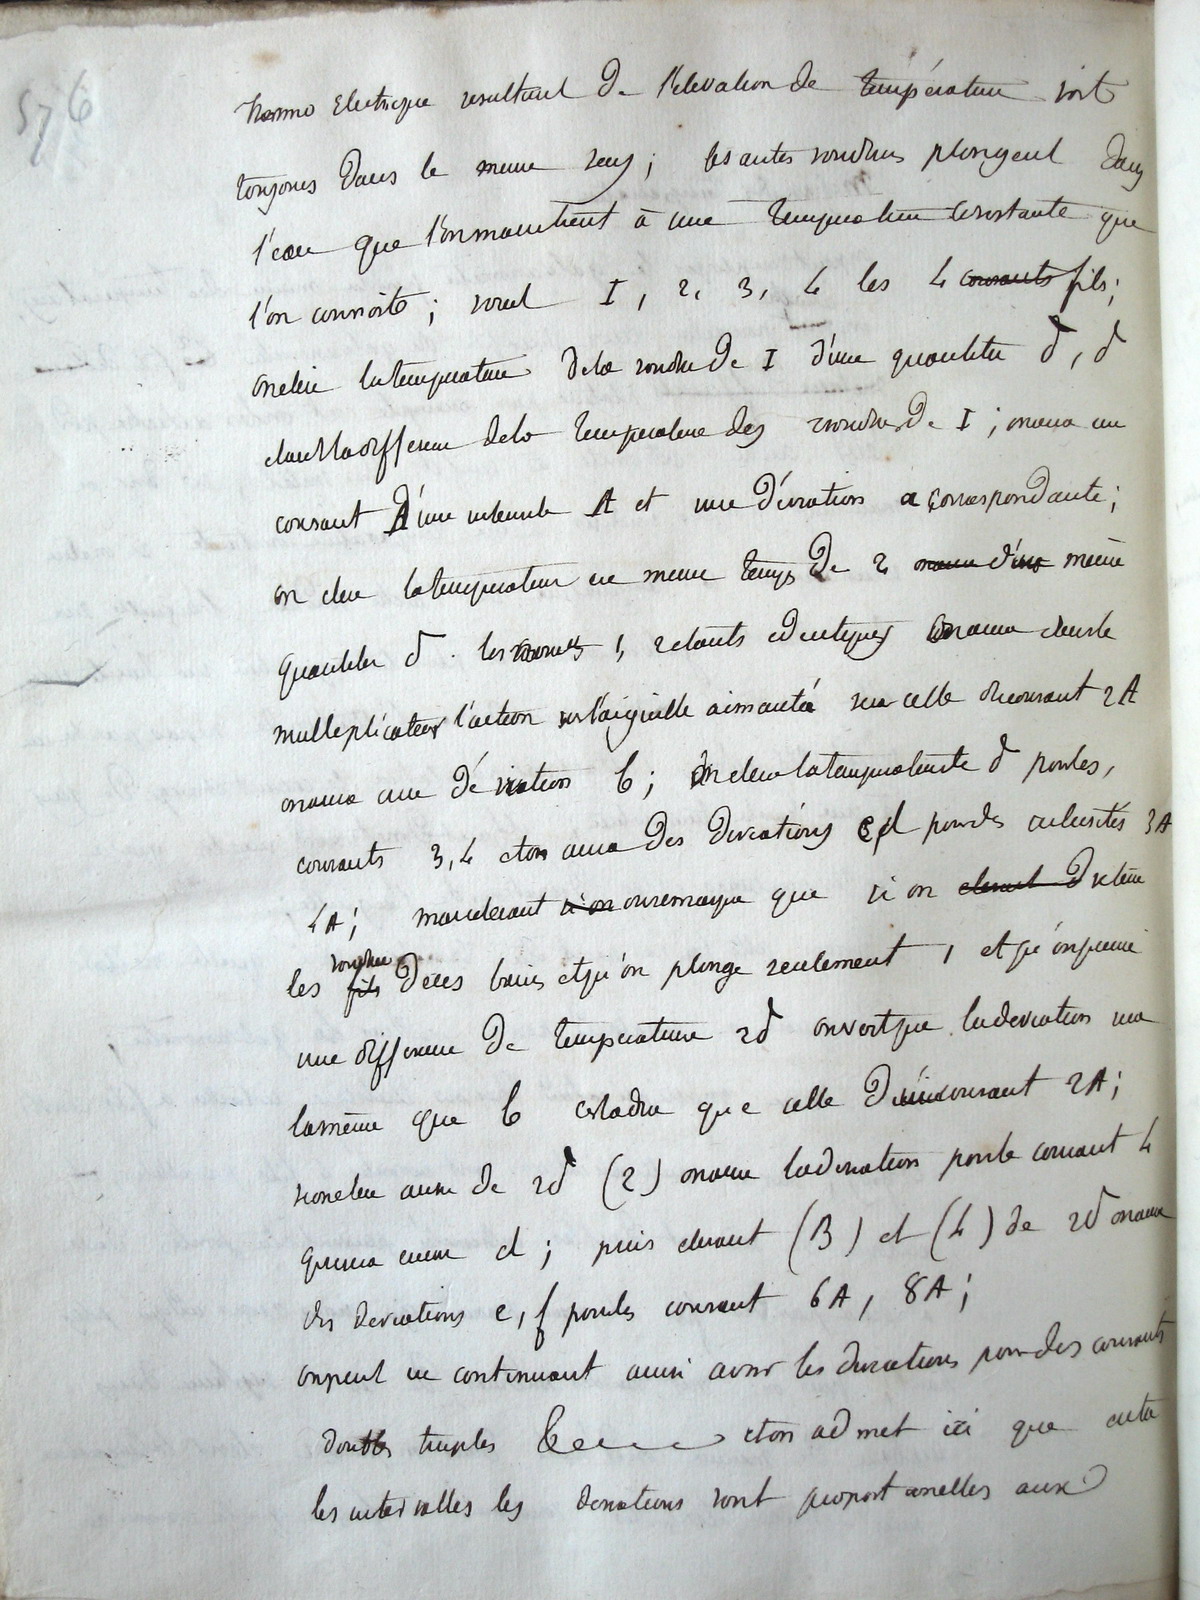 576
thermo electrique resultant de l'elevation de température soit
toujours dans le meme sens ; les autes soudures plongent dans
l'eau que l'on maintient à une temperature constante que
l'on connoite ; soient I, 2, 3, 4 les 4 courants fils ;
on eleve la temperature de la soudure de I d'une quantite d, d
etant la difference de la temperature des soudures de I ; on aura un
courant d'une intensite A et une déviation a correspondante ;
on eleve la temperature en meme temps de 2 on aura d'une même
quantite d. les 1, 2 etants identiques on aura dans le
multiplicateur l'action sur l'aiguille aimantée sera celle du courant 2A
on aura une déviation b ; on eleve la temperature de d pour les
courants 3, 4 et on aura des deviations c, d pour des intensités 3A
4A ; maintenant si on on remarque que si on
les fils soudures dans et qu'on plonge seulement 1 et qu'on prenne
une difference de temperature 2d on voit que la deviation sera
la même que b cest a dire que celle d'un courant 2A ;
si on eleve aussi de 2d (2) on aura la deviation pour le courant 4
qui sera d ; puis elevant (3) et (4) de 2d on aura
des deviations e, f pour les courant 6A, 8A ;
on peut en continuant ainsi avoir les deviations pour des courants
doubles triples &c et on admet ici que
les intervalles les deviations sont proportionelles aux